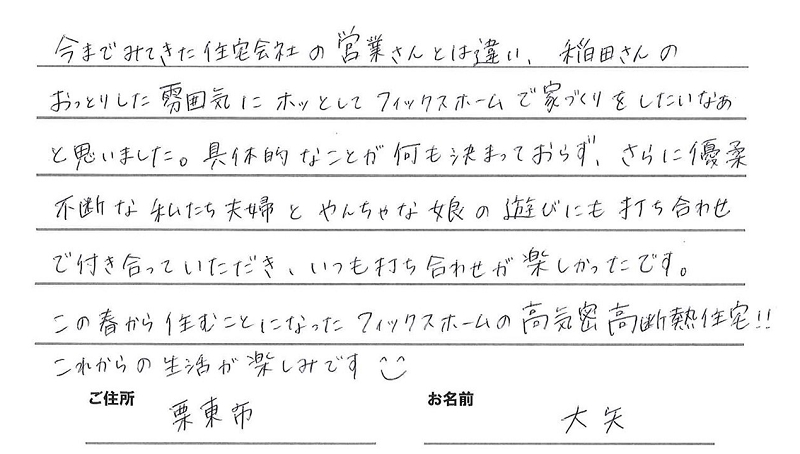 今までみてきた住宅会社の営業さんとは違い、稲田さんの
おっとりした雰囲気にホッとしてフィックスホームで家づくりをしたいなぁ
と思いました。具体的なことが何も決まっておらず、さらに優柔
不断な私たち夫婦とやんちゃな娘の遊びにも打ち合わせ
で付き合っていただき、いつも打ち合わせが楽しかったです。
この春から住むことになったフィックスホームの高気密高断熱住宅!!
これからの生活が楽しみです
ご住所 栗東市 お名前 大矢